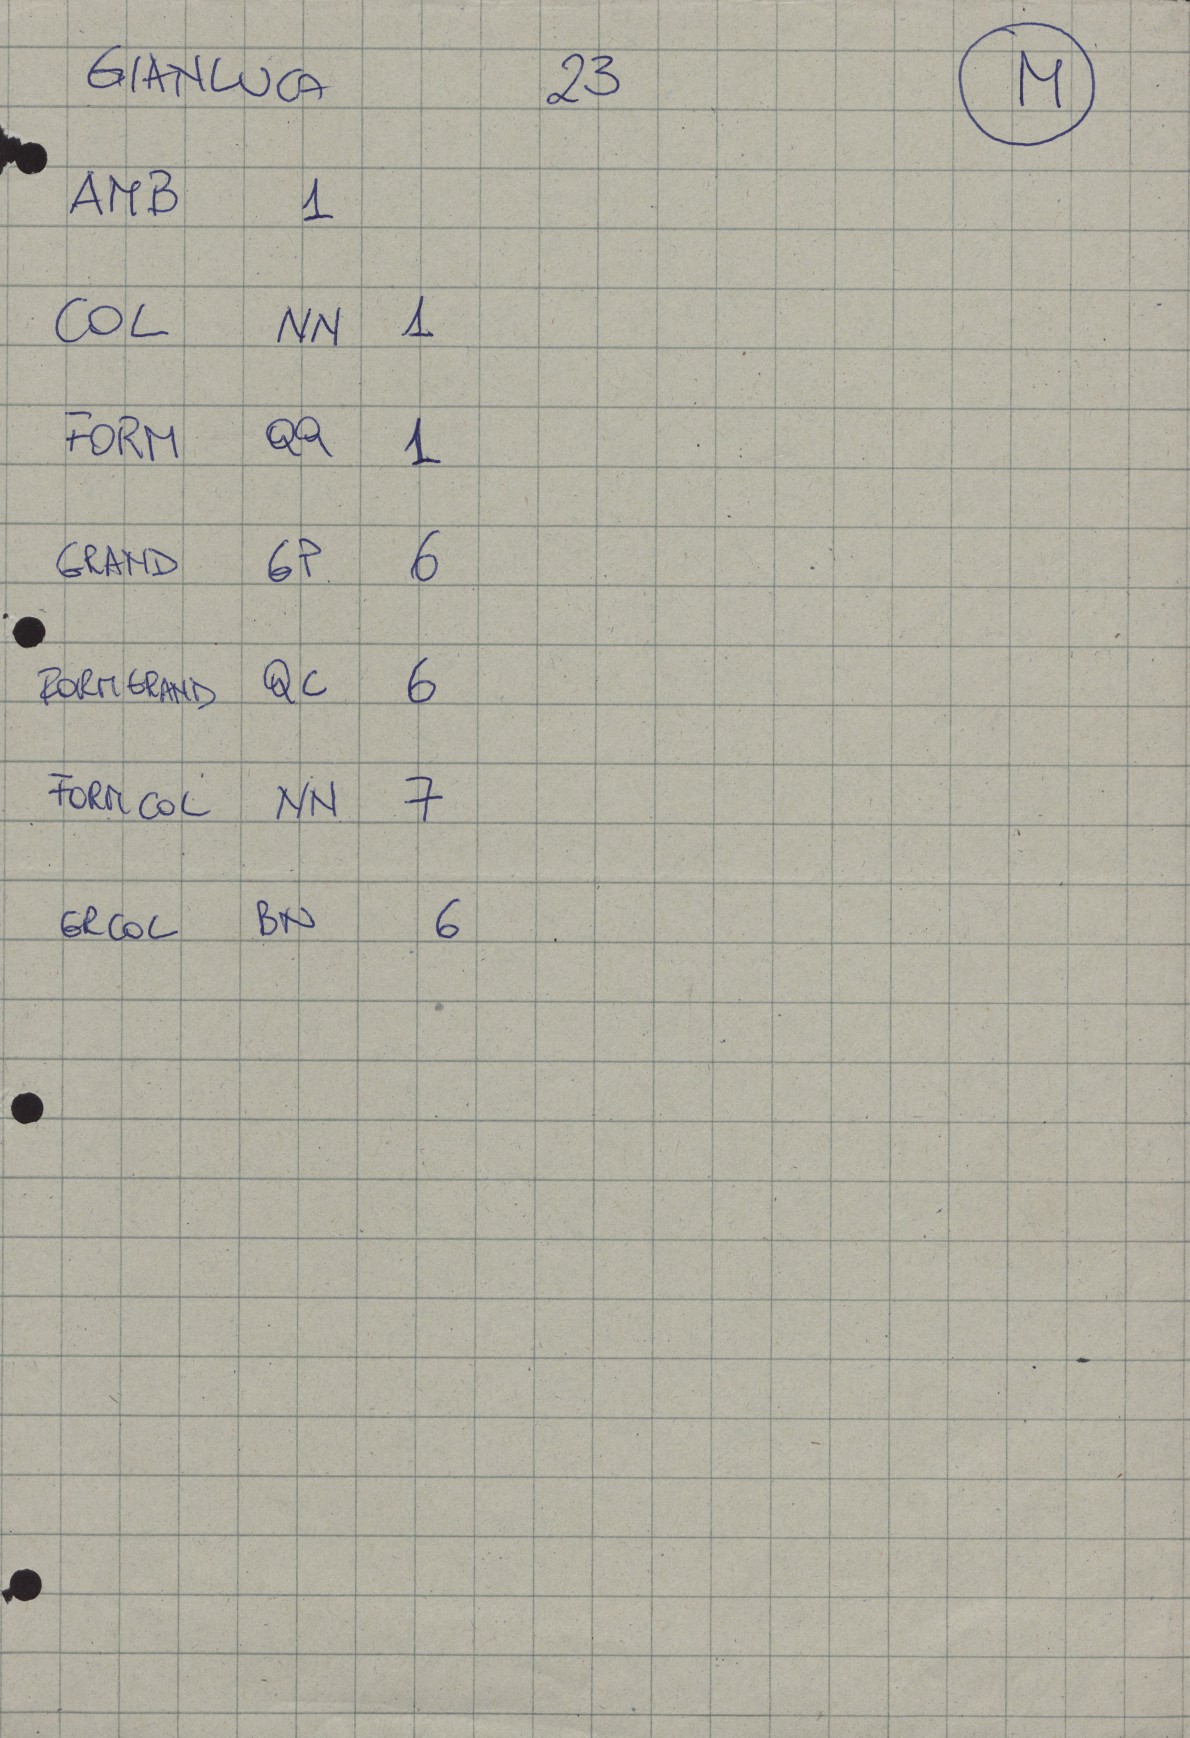 GIANLUCA 23 M
AMB 1
COL NN 1
FORM QQ 1
GRAND GP 6
FORMGRAND QC 6
FORMCOL NN 7
GRCOL BN 6